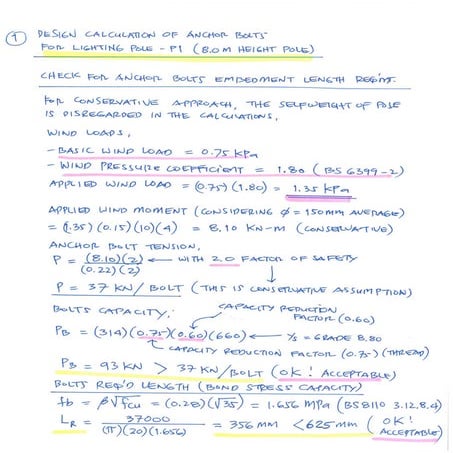 1 DESIGN CALCULATION OF ANCHOR BOLTS
FOR LIGHTING POLE - P1 (8.0M HEIGHT POLE)
CHECK FOR ANCHOR BOLTS EMBEDMENT LENGTH REQ'MT.
FOR CONSERVATIVE APPROACH, THE SELFWEIGHT OF POLE
IS DISREGARDED IN THE CALCULATIONS,
WIND LOADS,
- BASIC WIND LOAD = 0.75 KPa
- WIND PRESSURE COEFFICIENT = 1.80 (BS 6399-2)
APPLIED WIND LOAD = (0.75)(1.80) = 1.35 KPa
APPLIED WIND MOMENT (CONSIDERING Ø = 150MM AVERAGE)
= (1.35)(0.15)(10)(4) = 8.10 KN-M (CONSERVATIVE)
ANCHOR BOLT TENSION,
P = (8.10)(2) ← WITH 2.0 FACTOR OF SAFETY
(0.22)(2)
P = 37 KN / BOLT (THIS IS CONSERVATIVE ASSUMPTION)
BOLTS CAPACITY, CAPACITY REDUCTION
FACTOR (0.60)
PB = (314)(0.75)(0.60)(660) ← YS = GRADE 8.80
CAPACITY REDUCTION FACTOR (0.75) (THREAD)
PB = 93 KN > 37 KN/BOLT (OK! ACCEPTABLE)
BOLTS REQ'D LENGTH (BOND STRESS CAPACITY)
fb = β√fcu = (0.28)(√35) = 1.656 MPa (BS8110 3.12.8.4)
LR = 37000 = 356 MM < 625 MM (OK!
(π)(20)(1.656) ACCEPTABLE)